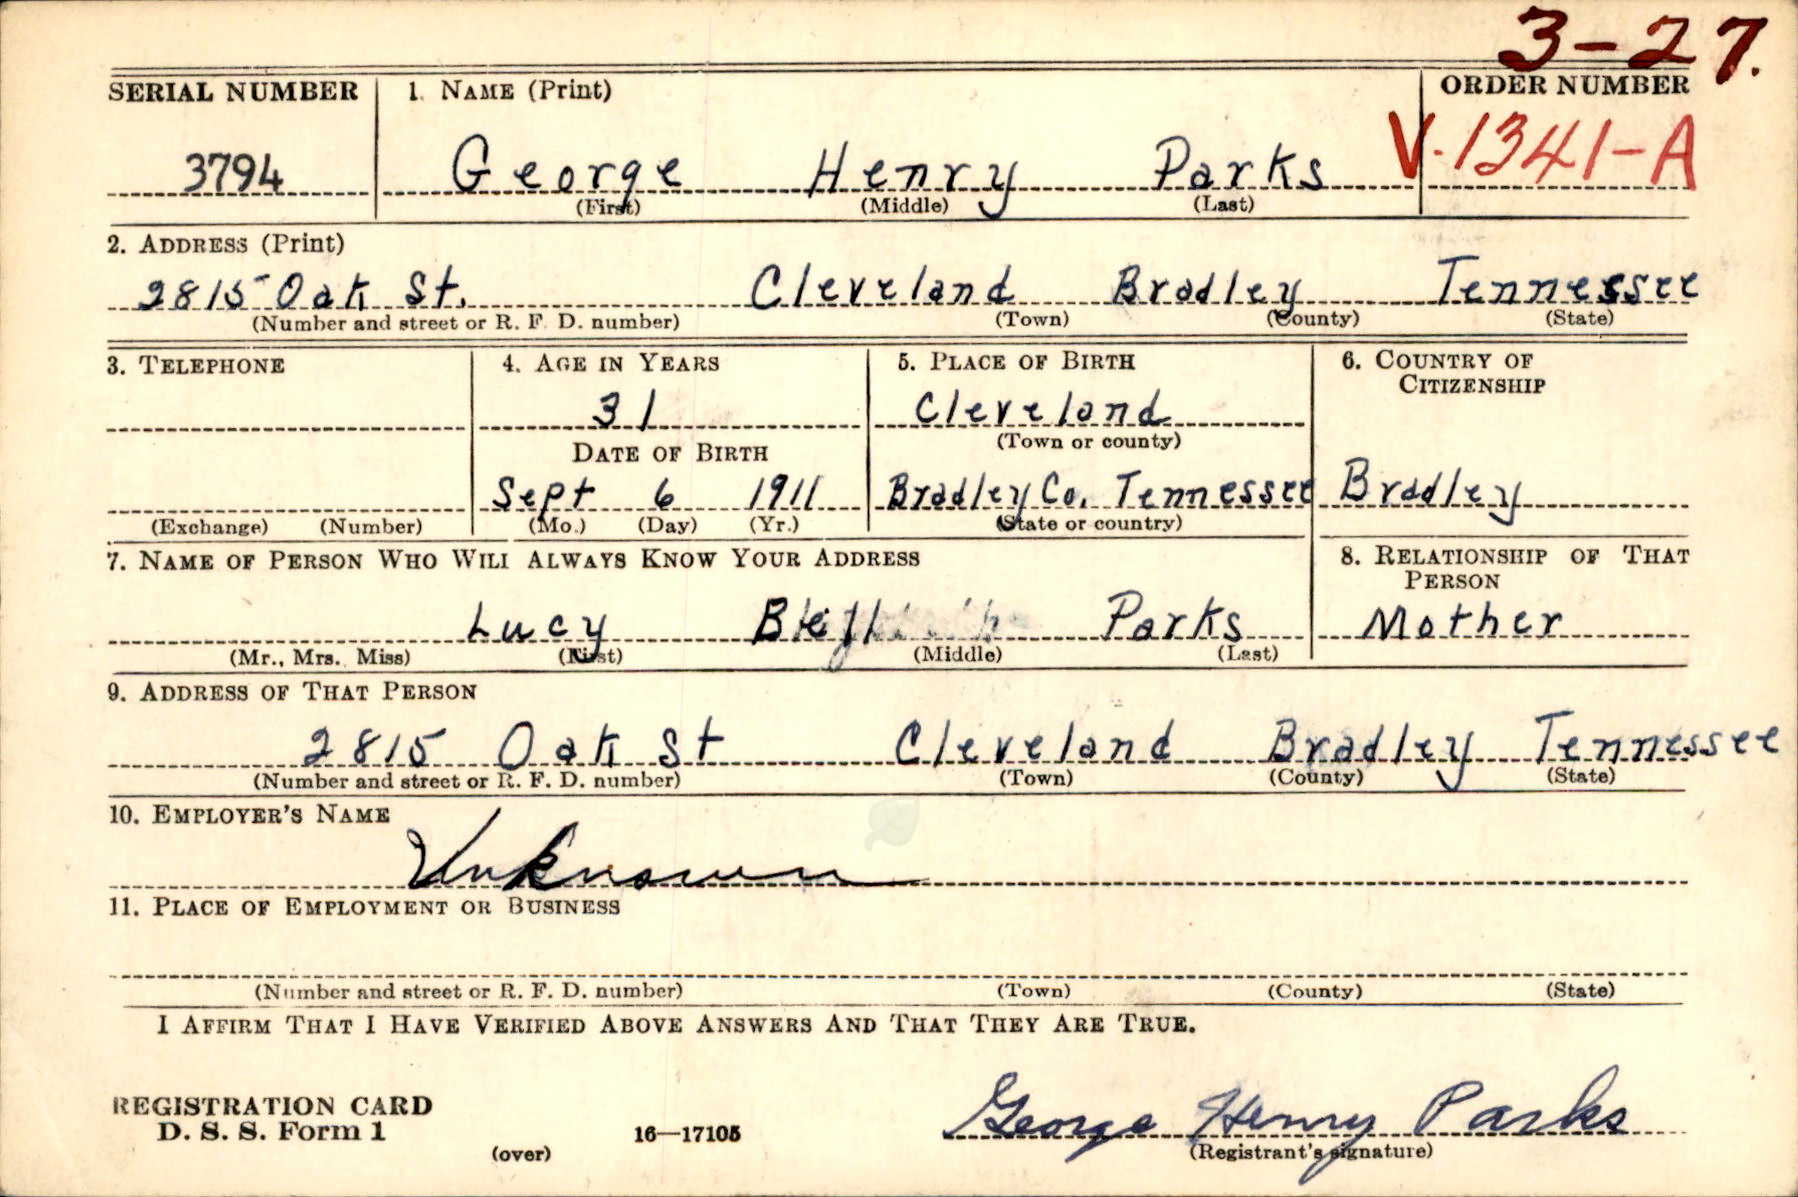 3-27.
SERIAL NUMBER 1. NAME (Print) ORDER NUMBER
3794 George Henry Parks V-1341-A
(First) (Middle) (Last)
2. ADDRESS (Print)
2815 Oak St. Cleveland Bradley Tennessee
(Number and street or R. F. D. number) (Town) (County) (State)
3. TELEPHONE 4. AGE IN YEARS 5. PLACE OF BIRTH 6. COUNTRY OF
CITIZENSHIP
31 Cleveland
DATE OF BIRTH (Town or county)
Sept 6 1911 Bradley Co. Tennessee Bradley
(Exchange) (Number) (Mo.) (Day) (Yr.) (State or country)
7. NAME OF PERSON WHO WILL ALWAYS KNOW YOUR ADDRESS 8. RELATIONSHIP OF THAT
PERSON
Lucy Parks Mother
(Mr., Mrs. Miss) (First) (Middle) (Last)
9. ADDRESS OF THAT PERSON
2815 Oak St Cleveland Bradley Tennessee
(Number and street or R. F. D. number) (Town) (County) (State)
10. EMPLOYER'S NAME
Unknown
11. PLACE OF EMPLOYMENT OR BUSINESS
(Number and street or R. F. D. number) (Town) (County) (State)
I AFFIRM THAT I HAVE VERIFIED ABOVE ANSWERS AND THAT THEY ARE TRUE.
REGISTRATION CARD
D. S. S. Form 1 16—17105 George Henry Parks
(over) (Registrant's signature)